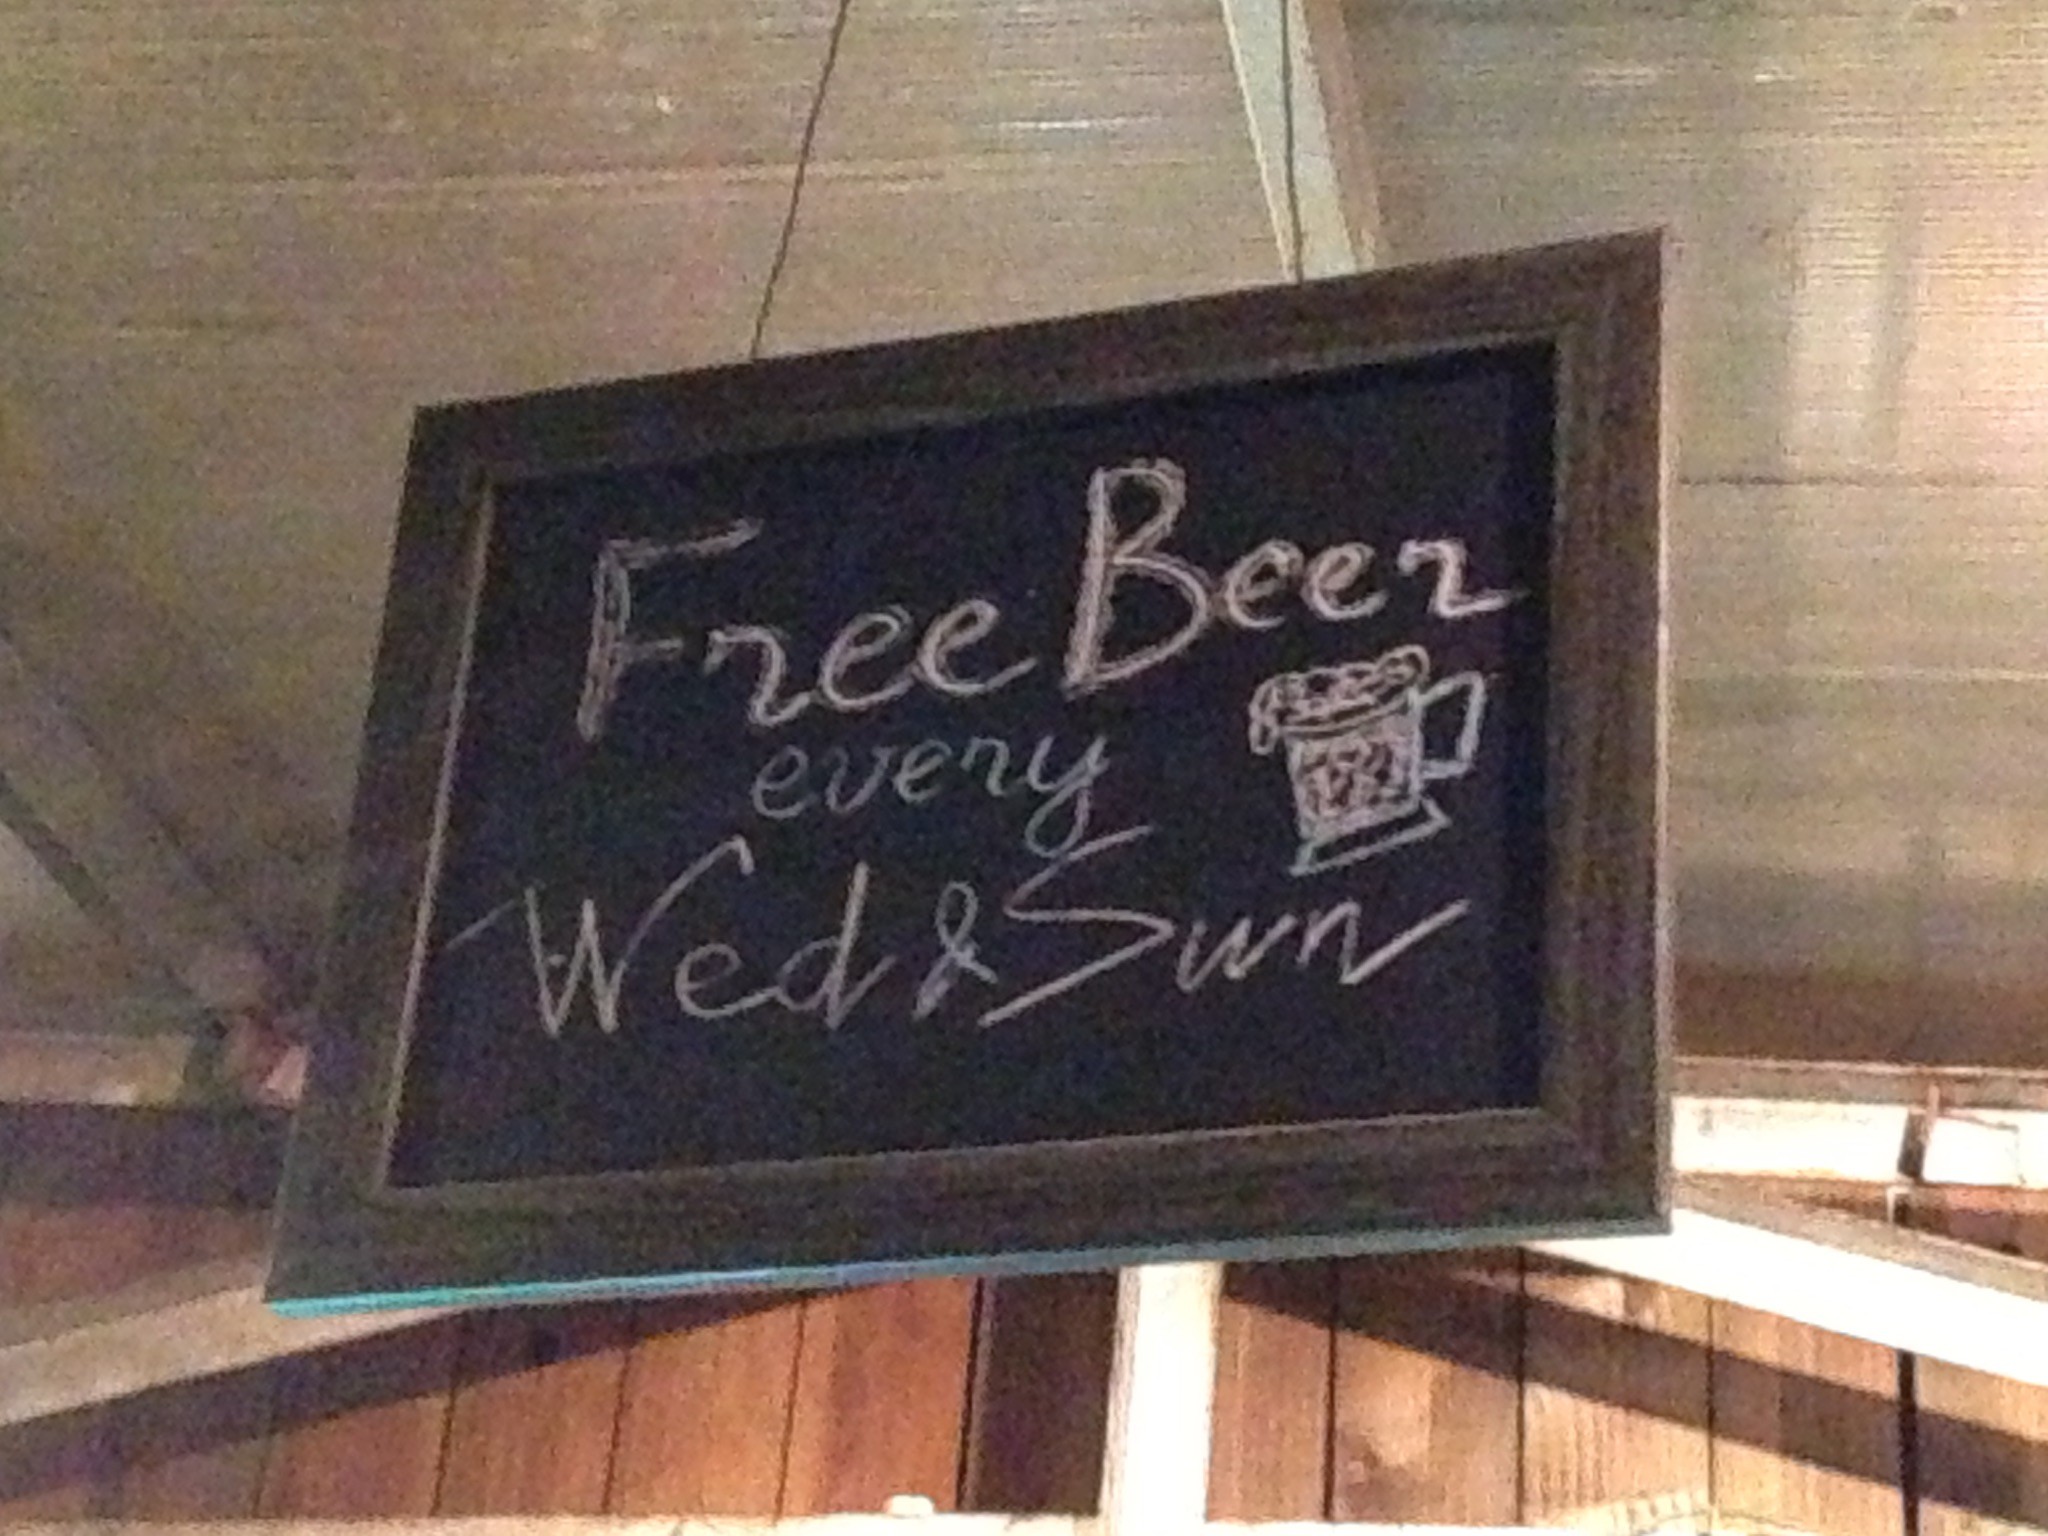 Free Beer
every
Wed & Sun